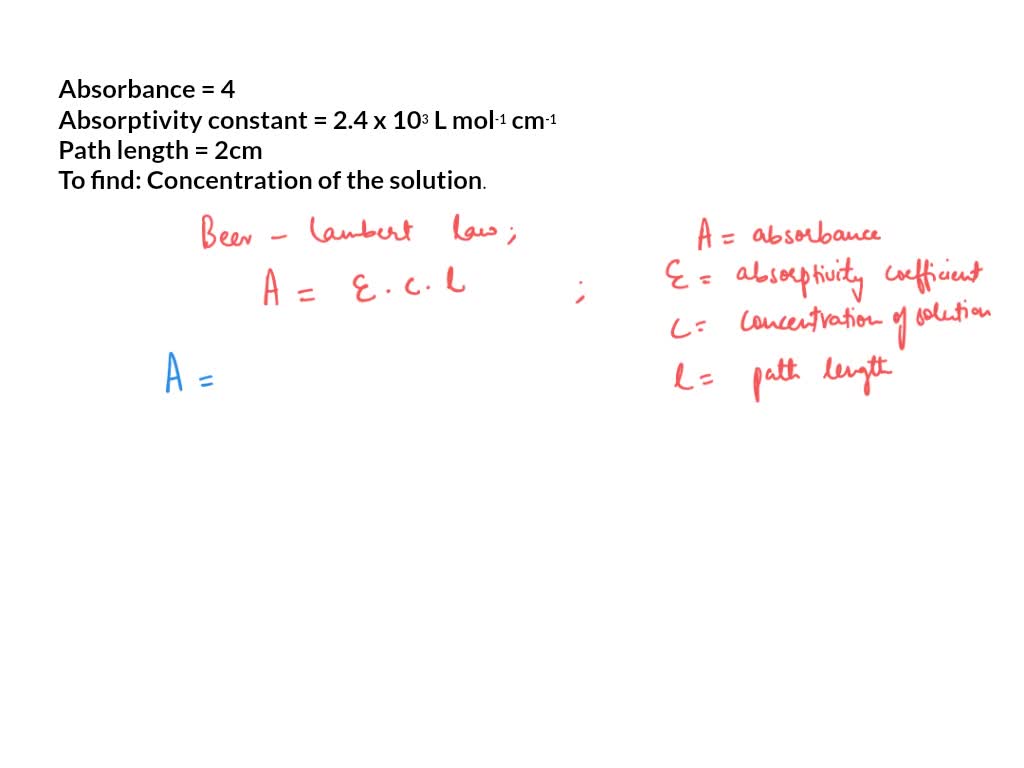 Absorbance = 4
Absorptivity constant = 2.4 x 10³ L mol⁻¹ cm⁻¹
Path length = 2cm
To find: Concentration of the solution.
Beer - Lambert Law ;
A = ε . c . l ;
A = absorbance
ε = absorptivity coefficient
c = concentration of solution
l = path length
A =